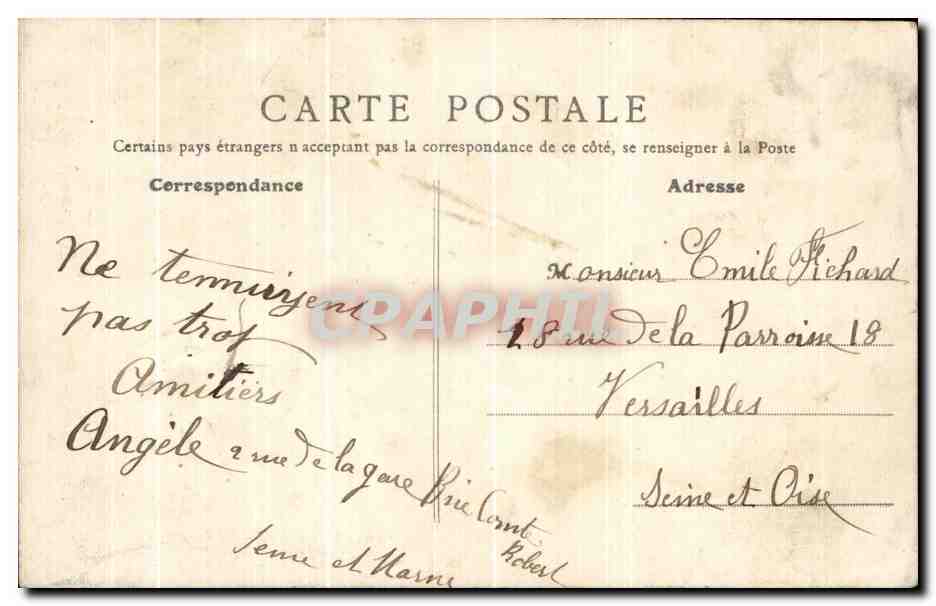 CARTE POSTALE
Certains pays étrangers n acceptant pas la correspondance de ce côté, se renseigner à la Poste
Correspondance
Ne tennuiyent
pas trop
Amitiers
Angèle 2 rue de la gare Brie Comte
Robert
Seine et Marne
Adresse
Monsieur Emile Fichard
18 rue de la Parroisse 18
Versailles
Seine et Oise
CPAPHIL